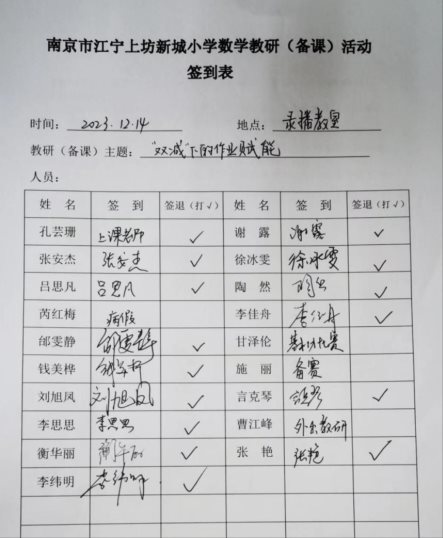 南京市江宁上坊新城小学数学教研（备课）活动
签到表
时间： 2023.12.14 地点： 录播教室
教研（备课）主题： “双减”下的作业赋能
人员：
姓 名 签 到 签退（打√） 姓 名 签 到 签退（打√）
孔芸珊 上课老师 √ 谢 露 谢露 √
张安杰 张安杰 √ 徐冰雯 徐冰雯 √
吕思凡 吕思凡 √ 陶 然 √
芮红梅 病假 李佳舟 李佳舟 √
邰雯静 邰雯静 √ 甘泽伦 基本功比赛
钱美桦 钱美桦 √ 施 丽 备赛
刘旭凤 刘旭凤 √ 言克琴 √
李思思 李思思 √ 曹江峰 外出教研
衡华丽 √ 张 艳 张艳 √
李纬明 李纬明 √